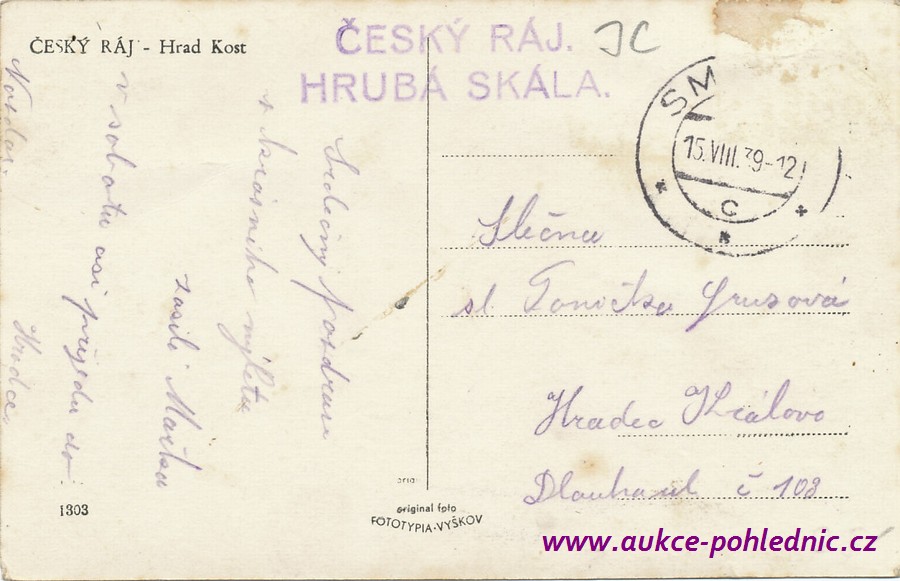 ČESKÝ RÁJ - Hrad Kost
ČESKÝ RÁJ.
HRUBÁ SKÁLA.
JC
SM
15.VIII.39-12
C
Srdečný pozdrav
z krásného výletu
zasílá Mařka
v sobotu asi přijedu do
Hradce. Nazdar.
Slečna
sl. Tonička
Hradec Králové
Dlouhá ul č 103
1303
original foto
FOTOTYPIA-VYŠKOV
www.aukce-pohlednic.cz